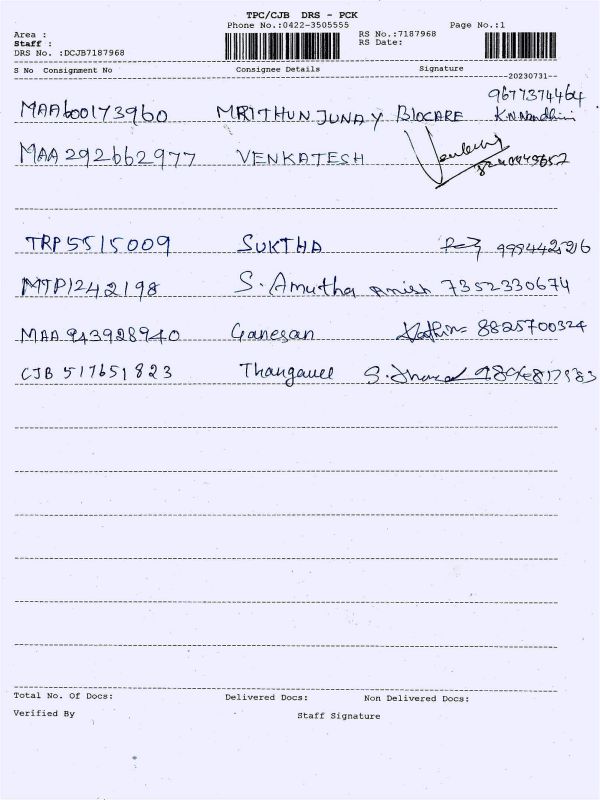 TPC/CJB DRS - PCK
Phone No.:0422-3505555 Page No.:1
Area : RS No.:7187968
Staff : RS Date:
DRS No. :DCJB7187968
S No Consignment No Consignee Details Signature
--20230731--
9677374464
MAA600173960 MRITHUNJUNAY BIOCARE K.N.Nandhini
MAA292662977 VENKATESH
TRP5515009 SUKTHA 9994425216
MTP1242198 S. Amutha Anish 7352330674
MAA943928940 Ganesan 8825700324
CJB 517651823 Thangavel
Total No. Of Docs: Delivered Docs: Non Delivered Docs:
Verified By Staff Signature